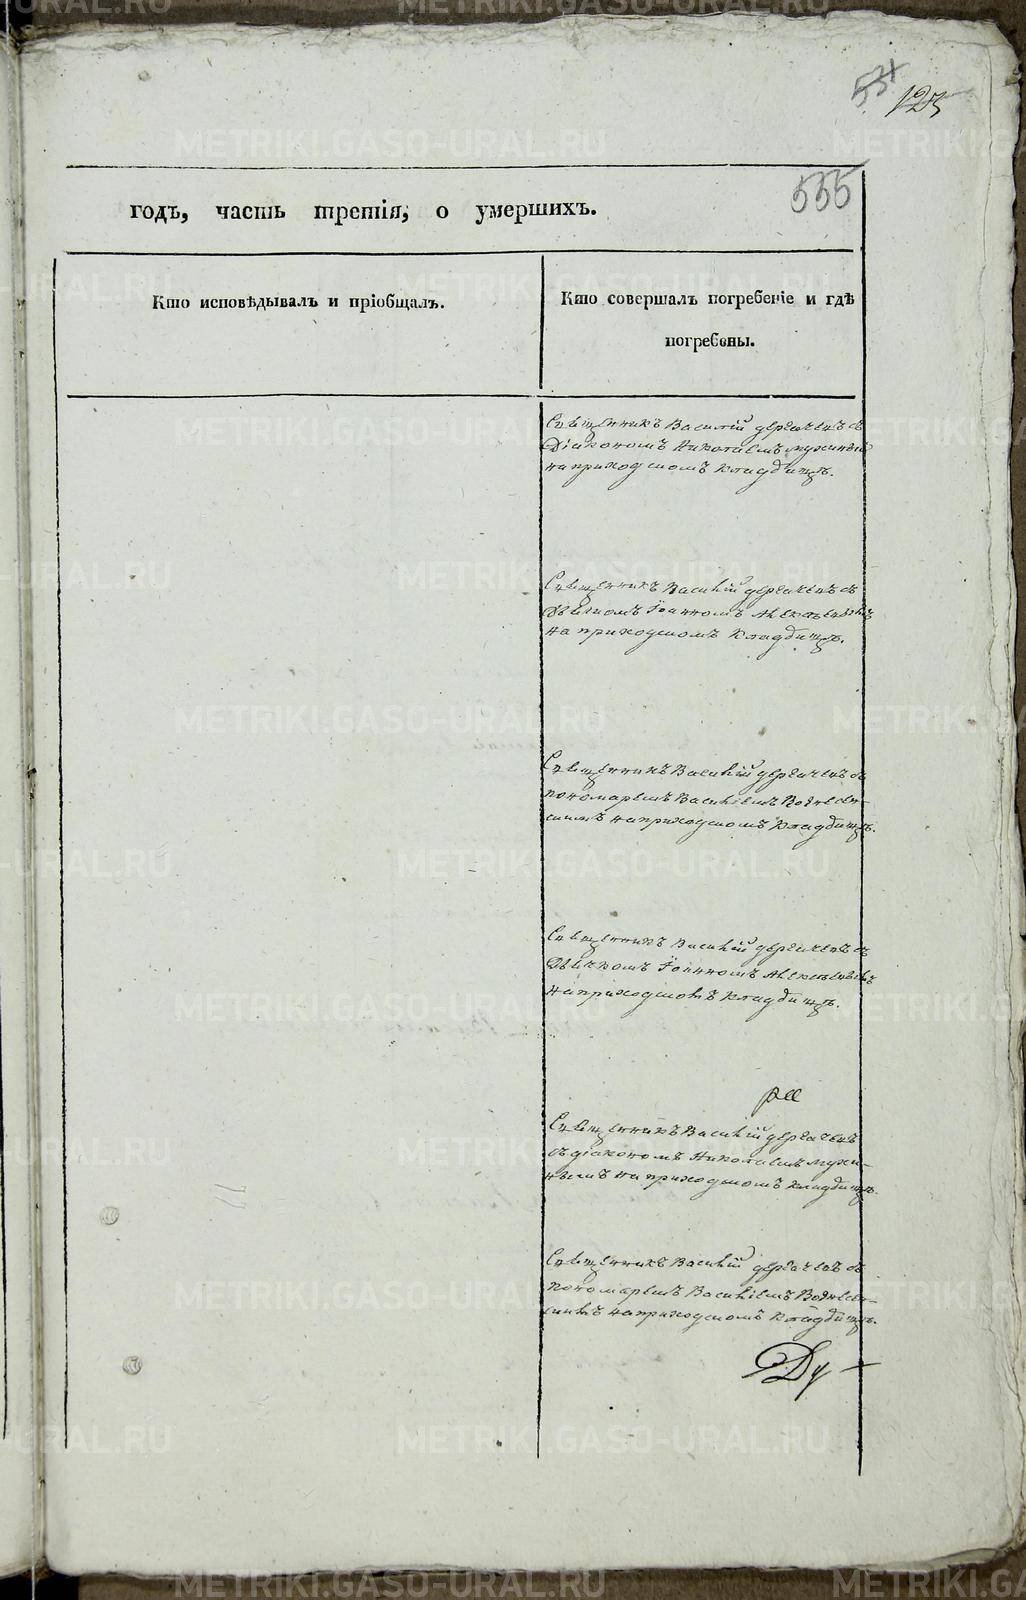 534
125
555
годъ, часть третія, о умершихъ.
Кто исповѣдывалъ и пріобщалъ.
Кто совершалъ погребеніе и гдѣ
погребены.
Священникъ Василій дергачевъ съ
Діакономъ Николаемъ мухинымъ
на приходскомъ кладбищѣ.
Священникъ Василій дергачевъ съ
Дьячкомъ Іоанномъ
на приходскомъ кладбищѣ.
Священникъ Василій дергачевъ съ
пономаремъ Василіемъ Вознесен-
скимъ на приходскомъ кладбищѣ.
Священникъ Василій дергачевъ съ
Дьячкомъ Іоанномъ
на приходскомъ кладбищѣ.
Священникъ Василій дергачевъ
съ діакономъ Николаемъ мухи-
нымъ на приходскомъ кладбищѣ.
Священникъ Василій дергачевъ съ
пономаремъ Василіемъ Вознесен-
скимъ на приходскомъ кладбищѣ.
METRIKI.GASO-URAL.RU